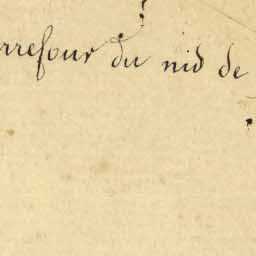 rrefour du nid de